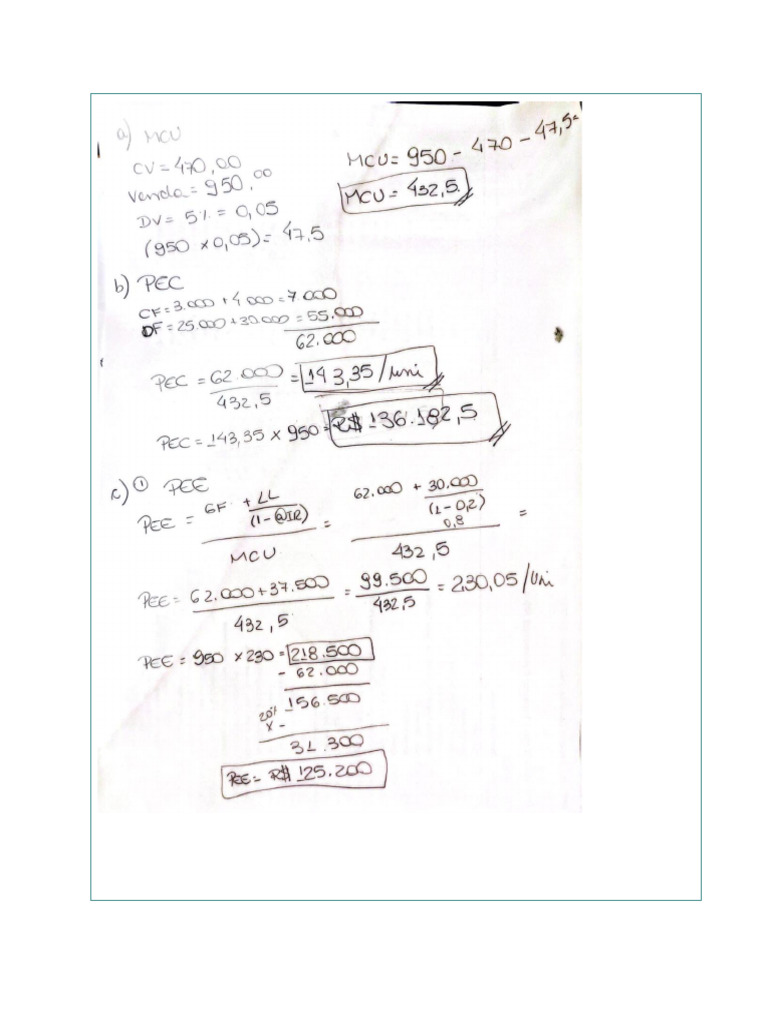 a) MCU
CV = 470,00
Venda = 950,00
DV = 5% = 0,05
(950 x 0,05) = 47,5
MCU = 950 - 470 - 47,5 =
MCU = 432,5
b) PEC
CF = 3.000 + 4 000 = 7.000
DF = 25.000 + 30.000 = 55.000
62.000
PEC = 62.000 / 432,5 = 143,35 / uni
PEC = 143,35 x 950 = R$ 136.182,5
c) ① PEE
PEE = GF + LL / (1 - @IR) / MCU = 62.000 + 30.000 / (1 - 0,2) 0,8 / 432,5 =
PEE = 62.000 + 37.500 / 432,5 = 99.500 / 432,5 = 230,05 / Uni
PEE = 950 x 230 = 218.500
- 62.000
156.500
20% x -
31.300
PEE = R$ 125.200